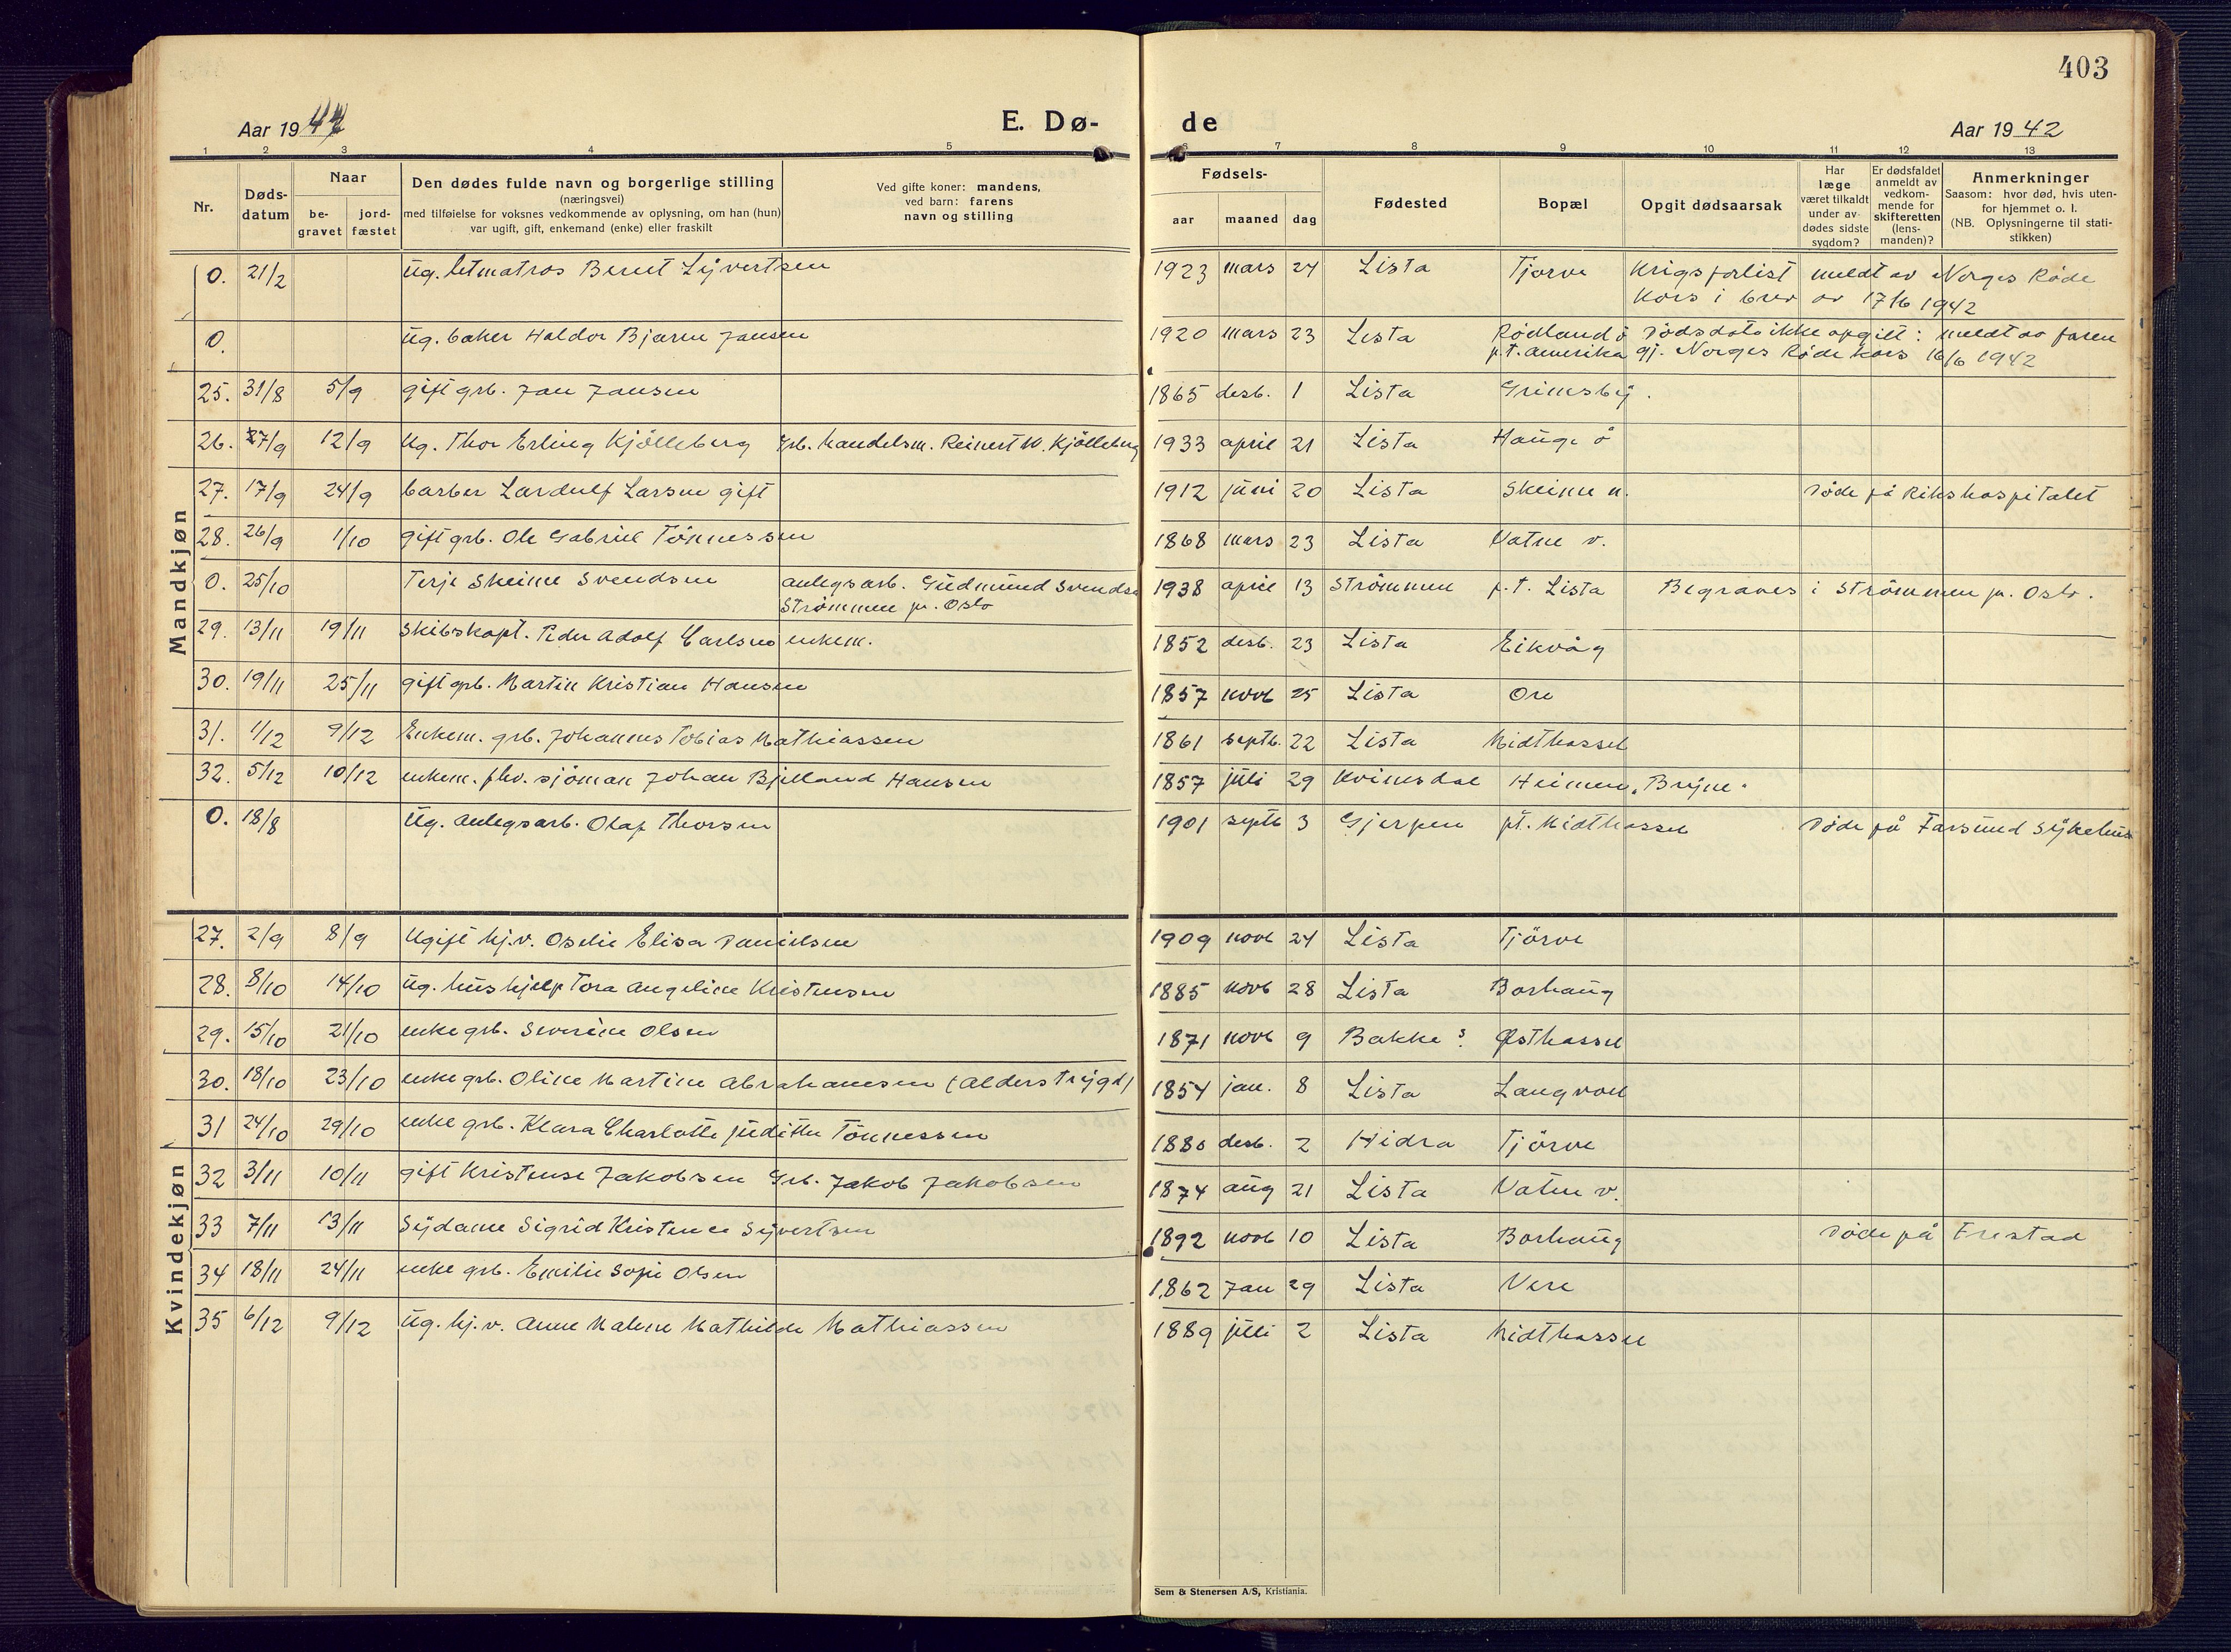 403
Aar 1942 E. Dø- de Aar 1942
1 2 3 4 5 6 7 8 9 10 11 12 13
Nr. Døds-datum Naar be-gravet jord-fæstet Den dødes fulde navn og borgerlige stilling (næringsvei) med tilføielse for voksnes vedkommende av oplysning, om han (hun) var ugift, gift, enkemand (enke) eller fraskilt Ved gifte koner: mandens, ved barn: farens navn og stilling Fødsels- aar maaned dag Fødested Bopæl Opgit dødsaarsak Har læge været tilkaldt under av-dødes sidste sygdom? Er dødsfaldet anmeldt av vedkom-mende for skifteretten (lens-manden)? Anmerkninger Saasom: hvor død, hvis uten-for hjemmet o. l. (NB. Oplysningerne til stati-stikken)
Mandkjøn
0. 21/2 Ug. letmatros Berut Syvertsen 1923 mars 24 Lista Tjørve Krigsforlist meldt av Norges Røde
Kors i brev av 17/6 1942
0. Ug. baker Haldor Bjarne Jansen 1920 mars 23 Lista Rødland ø Dødsdato ikke opgitt: meldt av faren
p.t. Amerika gj. Norges Røde Kors 16/6 1942
25. 31/8 5/9 gift grb. Jan Jansen 1865 desb. 1 Lista Grimsby.
26. 7/9 12/9 Ug. Thor Erling Kjølleberg Grb. handelsm. Reinert M. Kjølleberg 1933 april 21 Lista Hauge ø
27. 17/9 24/9 barber Lardulf Larsen gift 1912 juni 20 Lista Skeime n. Døde på Rikshospitalet
28. 26/9 1/10 gift grb. Ole Gabriel Tønnessen 1868 mars 23 Lista Vatne v.
0. 25/10 Terje Skeime Svendsen anlegsarb. Gudmund Svendsen 1938 april 13 Strømmen p.t. Lista Begraves i Strømmen pr. Oslo.
Strømmen pr. Oslo
29. 13/11 19/11 Skibskapt. Peder Adolf Carlsen enkem. 1852 desb. 23 Lista Eikvåg
30. 19/11 25/11 gift grb. Martin Kristian Hansen 1857 novb 25 Lista Ore
31. 1/12 9/12 Enkem. grb. Johannes Tobias Mathiassen 1861 septb. 22 Lista Midthassel
32. 5/12 10/12 enkem. fhv. sjøman Johan Bjelland Hansen 1857 juli 29 Kvinesdal Heimen, Bryne.
0. 18/8 Ug. Anlegsarb. Olaf Thorsen 1901 septb 3 Gjerpen pt. Midthassel Døde på Farsund Sykehus
Kvindekjøn
27. 2/9 8/9 Ugift hj.v. Oselie Elisa Danielsen 1909 novb 24 Lista Tjørve
28. 8/10 14/10 Ug. hushjelp Tora Angeline Kristensen 1885 novb 28 Lista Borhaug
29. 15/10 21/10 enke grb. Severine Olsen 1871 novb 9 Bakke s. Østhassel
30. 18/10 23/10 enke grb. Oline Martine Abrahamsen (Alderstrygd) 1854 jan. 8 Lista Langvoll
31 24/10 29/10 enke grb. Klara Charlotte Judithe Tønnessen 1880 desb. 2 Hidra Tjørve
32 3/11 10/11 gift Kristense Jakobsen Grb. Jakob Jakobsen 1874 aug 21 Lista Vatne v.
33 7/11 13/11 Sydame Sigrid Kristence Syvertsen 1892 novb 10 Lista Borhaug Døde på Frestad
34 18/11 24/11 enke grb. Emilie Sofie Olsen 1862 Jan 29 Lista Vere
35 6/12 9/12 Ug. hj.v. Anne Malene Mathilde Mathiassen 1889 juli 2 Lista Midthassel
Sem & Stenersen A/S, Kristiania.